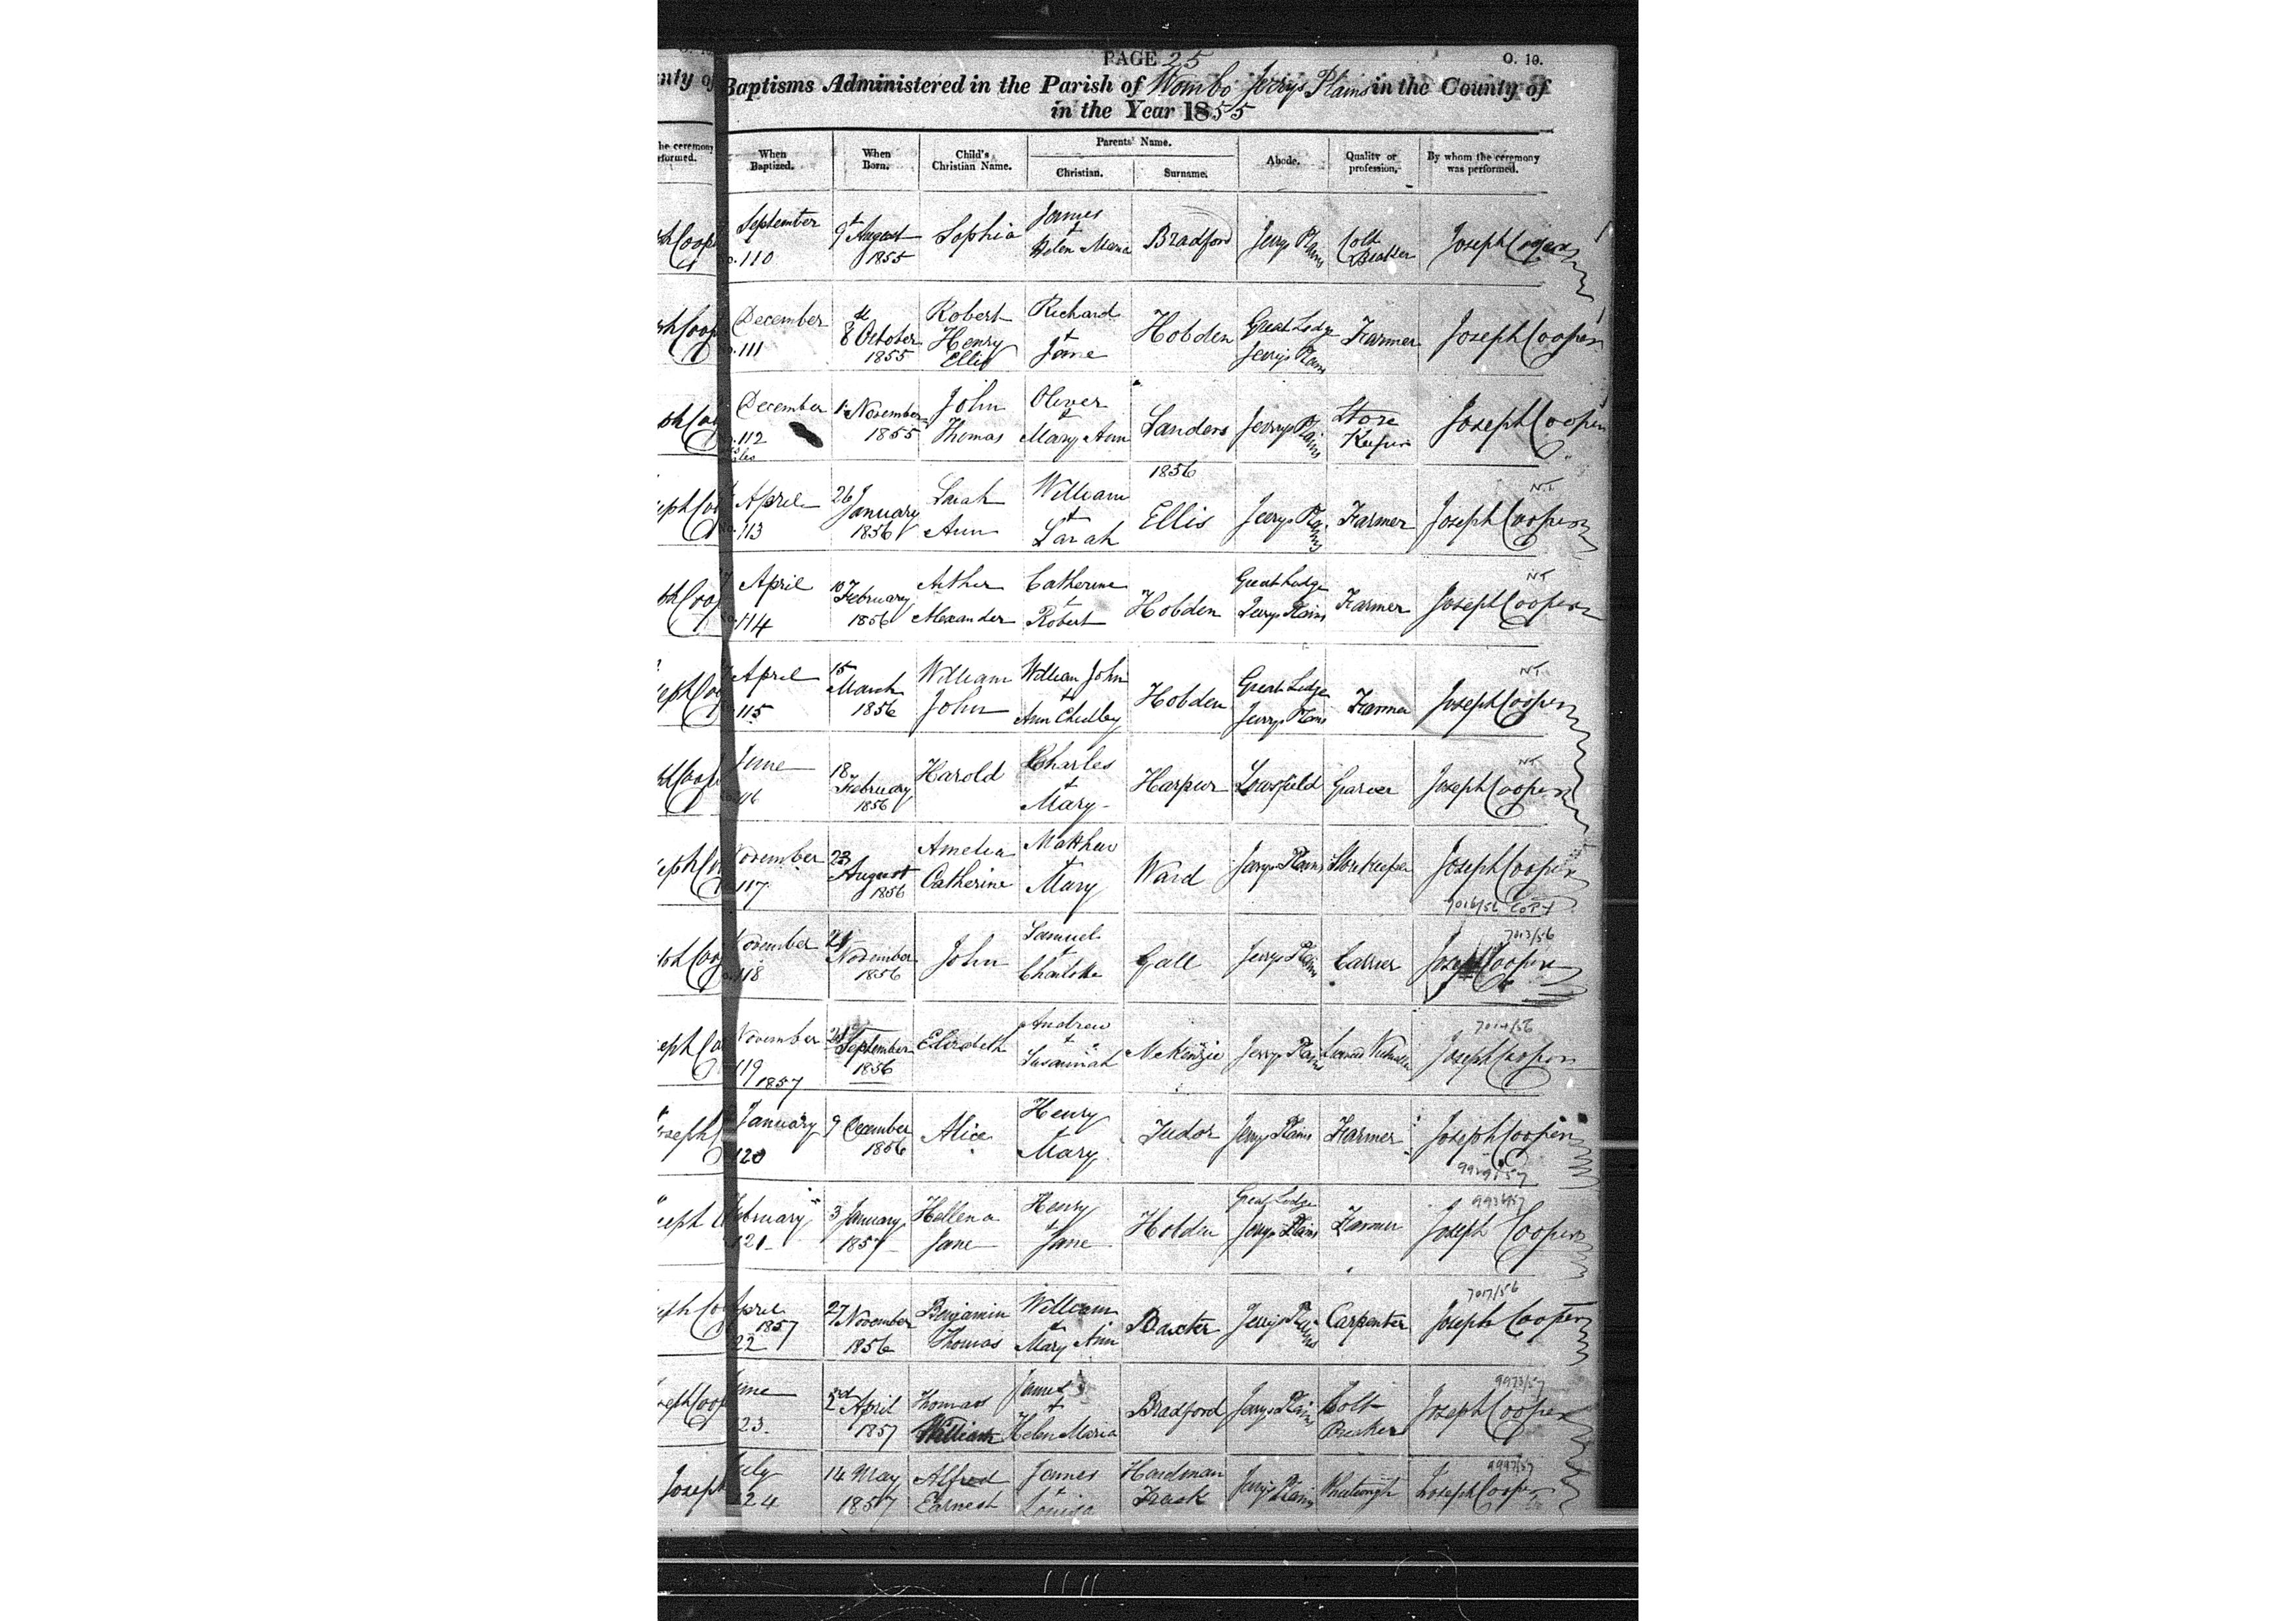 PAGE 25
O. 10.
Baptisms Administered in the Parish of Wambo Jerrys Plains in the County of
in the Year 1855
When Baptized. When Born. Child's Christian Name. Parents' Name. Christian. Surname. Abode. Quality or profession. By whom the ceremony was performed.
September No. 110 9th August 1855 Sophia James + Helen Maria Bradford Jerrys Plains Colt Breaker Joseph Cooper
December No. 111 8th October 1855 Robert Henry Ellis Richard + Jane Hobden Great Lodge Jerrys Plains Farmer Joseph Cooper
December No. 112 1 November 1855 John Thomas Oliver + Mary Ann Sanders Jerrys Plains Store Keeper Joseph Cooper
1856
April No. 113 26 January 1856 Sarah Ann William + Sarah Ellis Jerrys Plains Farmer N.T. Joseph Cooper
April 114 10 February 1856 Arthur Alexander Catherine + Robert Hobden Great Lodge Jerrys Plains Farmer NT Joseph Cooper
April 115 15 March 1856 William John William John + Ann Hobden Great Lodge Jerrys Plains Farmer NT. Joseph Cooper
June 116 18 February 1856 Harold Charles + Mary Harpur Joseph Cooper
November 117 23 August 1856 Amelia Catherine Matthew + Mary Ward Jerrys Plains Storekeeper Joseph Cooper
7016/56 COPY
November 118 November 1856 John Samuel + Charlotte Gall Jerrys Plains Carrier 7013/56 Joseph Cooper
November 119 September 1856 Elizabeth Andrew + Susannah McKenzie Jerrys Plains Licensed Victualler 7014/56 Joseph Cooper
1857
January 120 9 December 1856 Alice Henry Mary Tudor Jerrys Plains Farmer Joseph Cooper
February 121 3 January 1857 Hellena Jane Henry + Jane Hobden Great Lodge Jerrys Plains Farmer Joseph Cooper
April 1857 122 27 November 1856 Benjamin Thomas William + Mary Ann Baxter Jerrys Plains Carpenter 7017/56 Joseph Cooper
June 123. 2nd April 1857 Thomas William James + Helen Maria Bradford Jerrys Plains Colt Breaker Joseph Cooper
July 124 14 May 1857 Alfred Earnest James + Louisa Hardman Trask Jerrys Plains Joseph Cooper